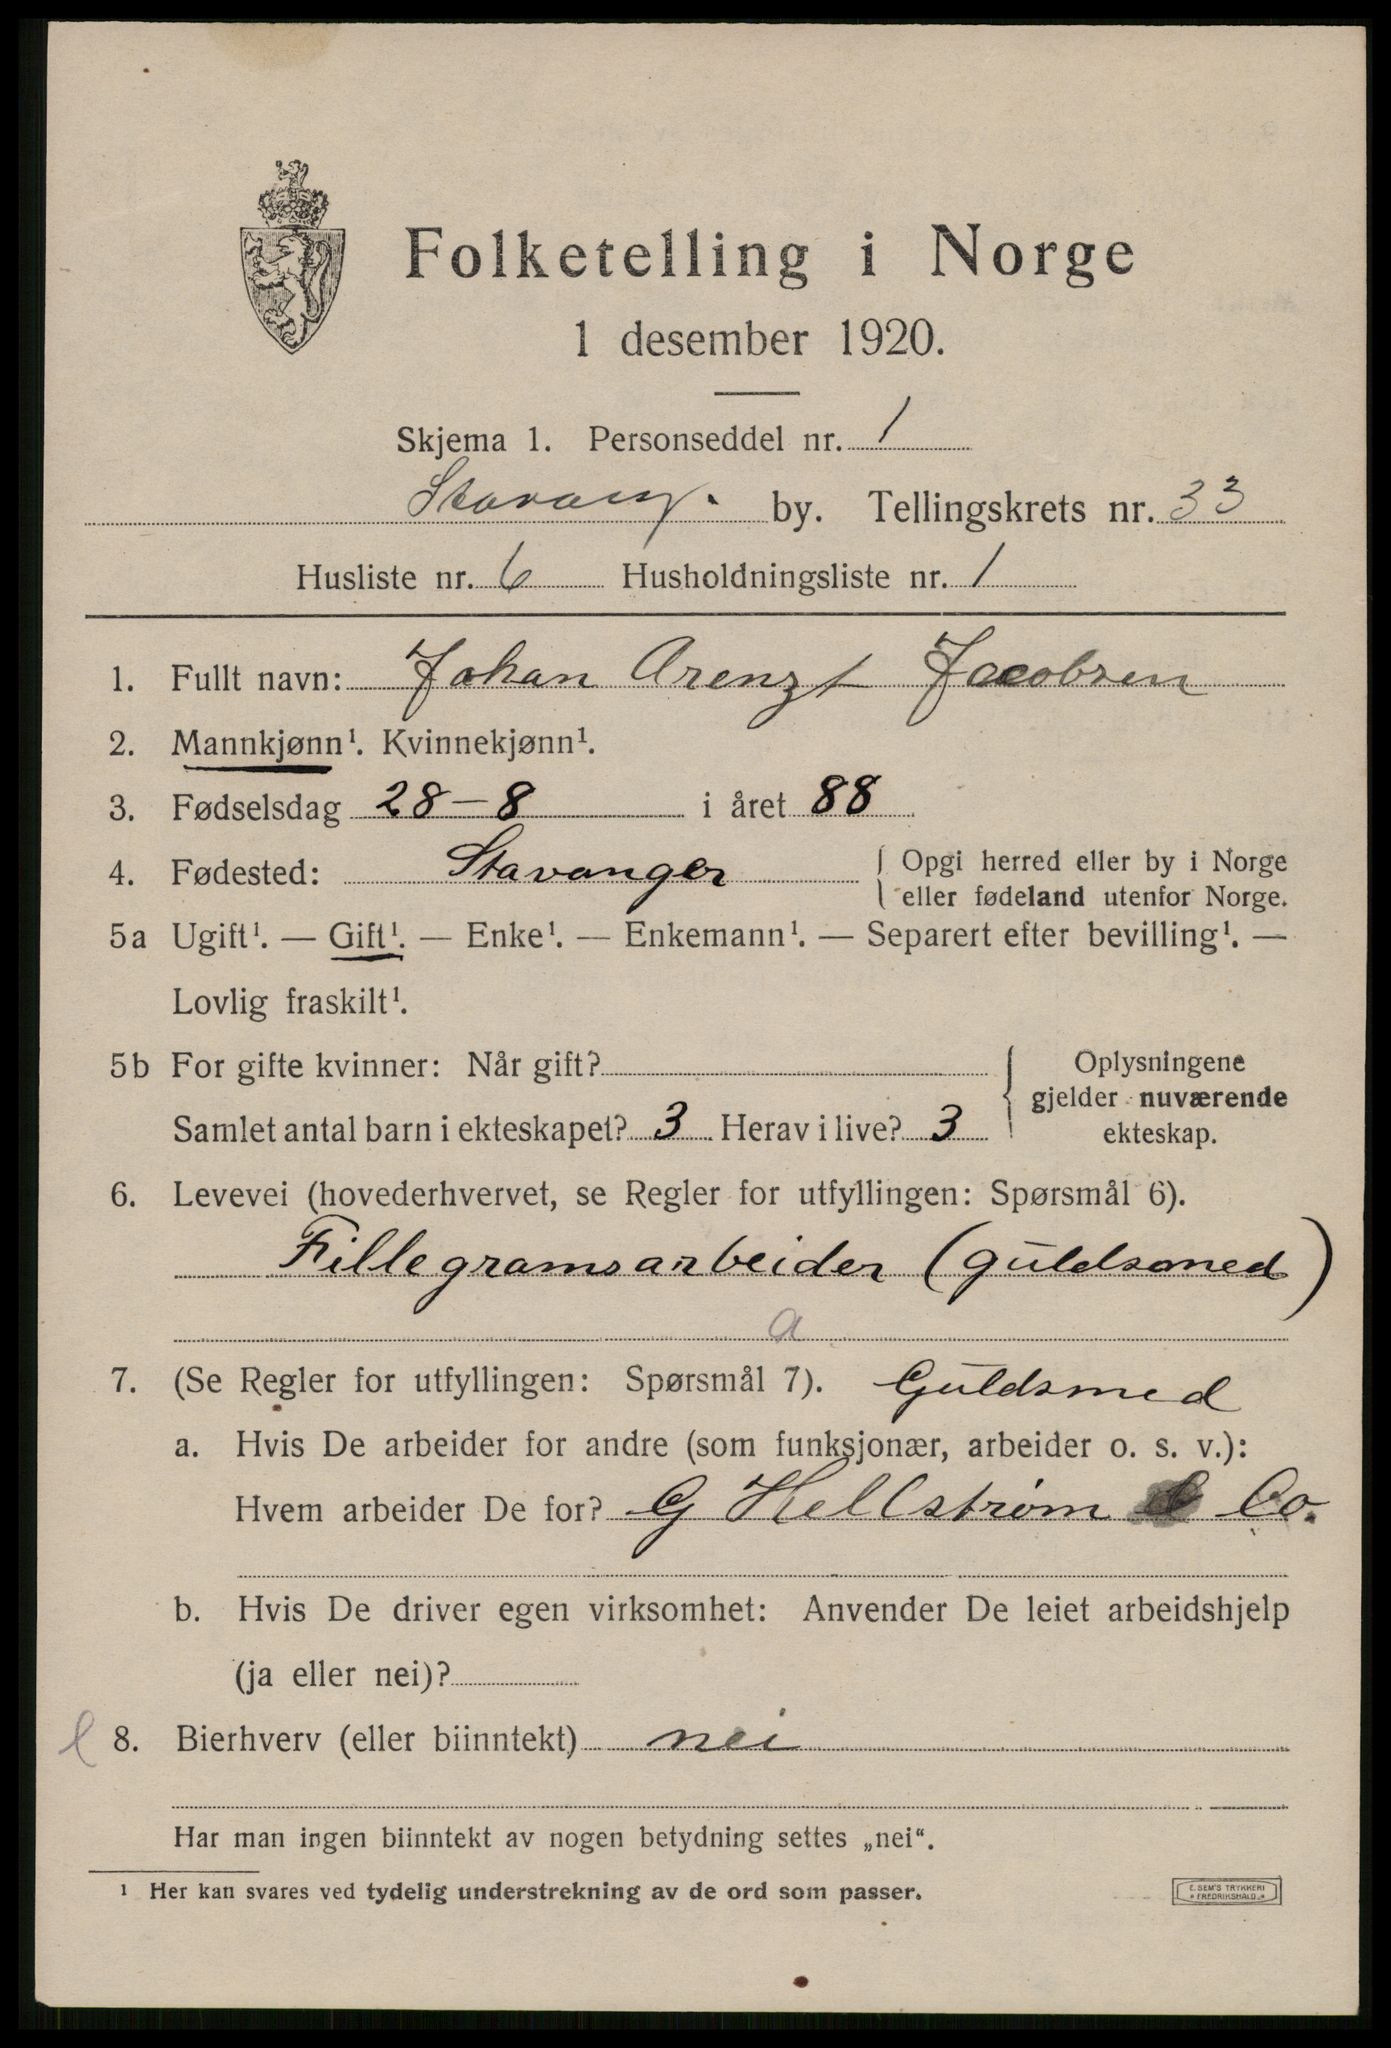 Folketelling i Norge
1 desember 1920.
Skjema 1. Personseddel nr. 1
Stavang. by. Tellingskrets nr. 33
Husliste nr. 6 Husholdningsliste nr. 1
1. Fullt navn: Johan Arenzt Jacobsen
2. Mannkjønn¹. Kvinnekjønn¹.
3. Fødselsdag 28-8 i året 88
4. Fødested: Stavanger { Opgi herred eller by i Norge
eller fødeland utenfor Norge.
5a Ugift¹. — Gift¹. — Enke¹. — Enkemann¹. — Separert efter bevilling¹. —
Lovlig fraskilt¹.
5b For gifte kvinner: Når gift? { Oplysningene
gjelder nuværende
Samlet antal barn i ekteskapet? 3 Herav i live? 3 ekteskap.
6. Levevei (hovederhvervet, se Regler for utfyllingen: Spørsmål 6).
Fillegramsarbeider (guldsmed)
a
7. (Se Regler for utfyllingen: Spørsmål 7). Guldsmed
a. Hvis De arbeider for andre (som funksjonær, arbeider o. s. v.):
Hvem arbeider De for? G Hellstrøm & Co.
b. Hvis De driver egen virksomhet: Anvender De leiet arbeidshjelp
(ja eller nei)?
8. Bierhverv (eller biinntekt) nei
Har man ingen biinntekt av nogen betydning settes „nei“.
¹ Her kan svares ved tydelig understrekning av de ord som passer.
E. SEM'S TRYKKERI
* FREDRIKSHALD *